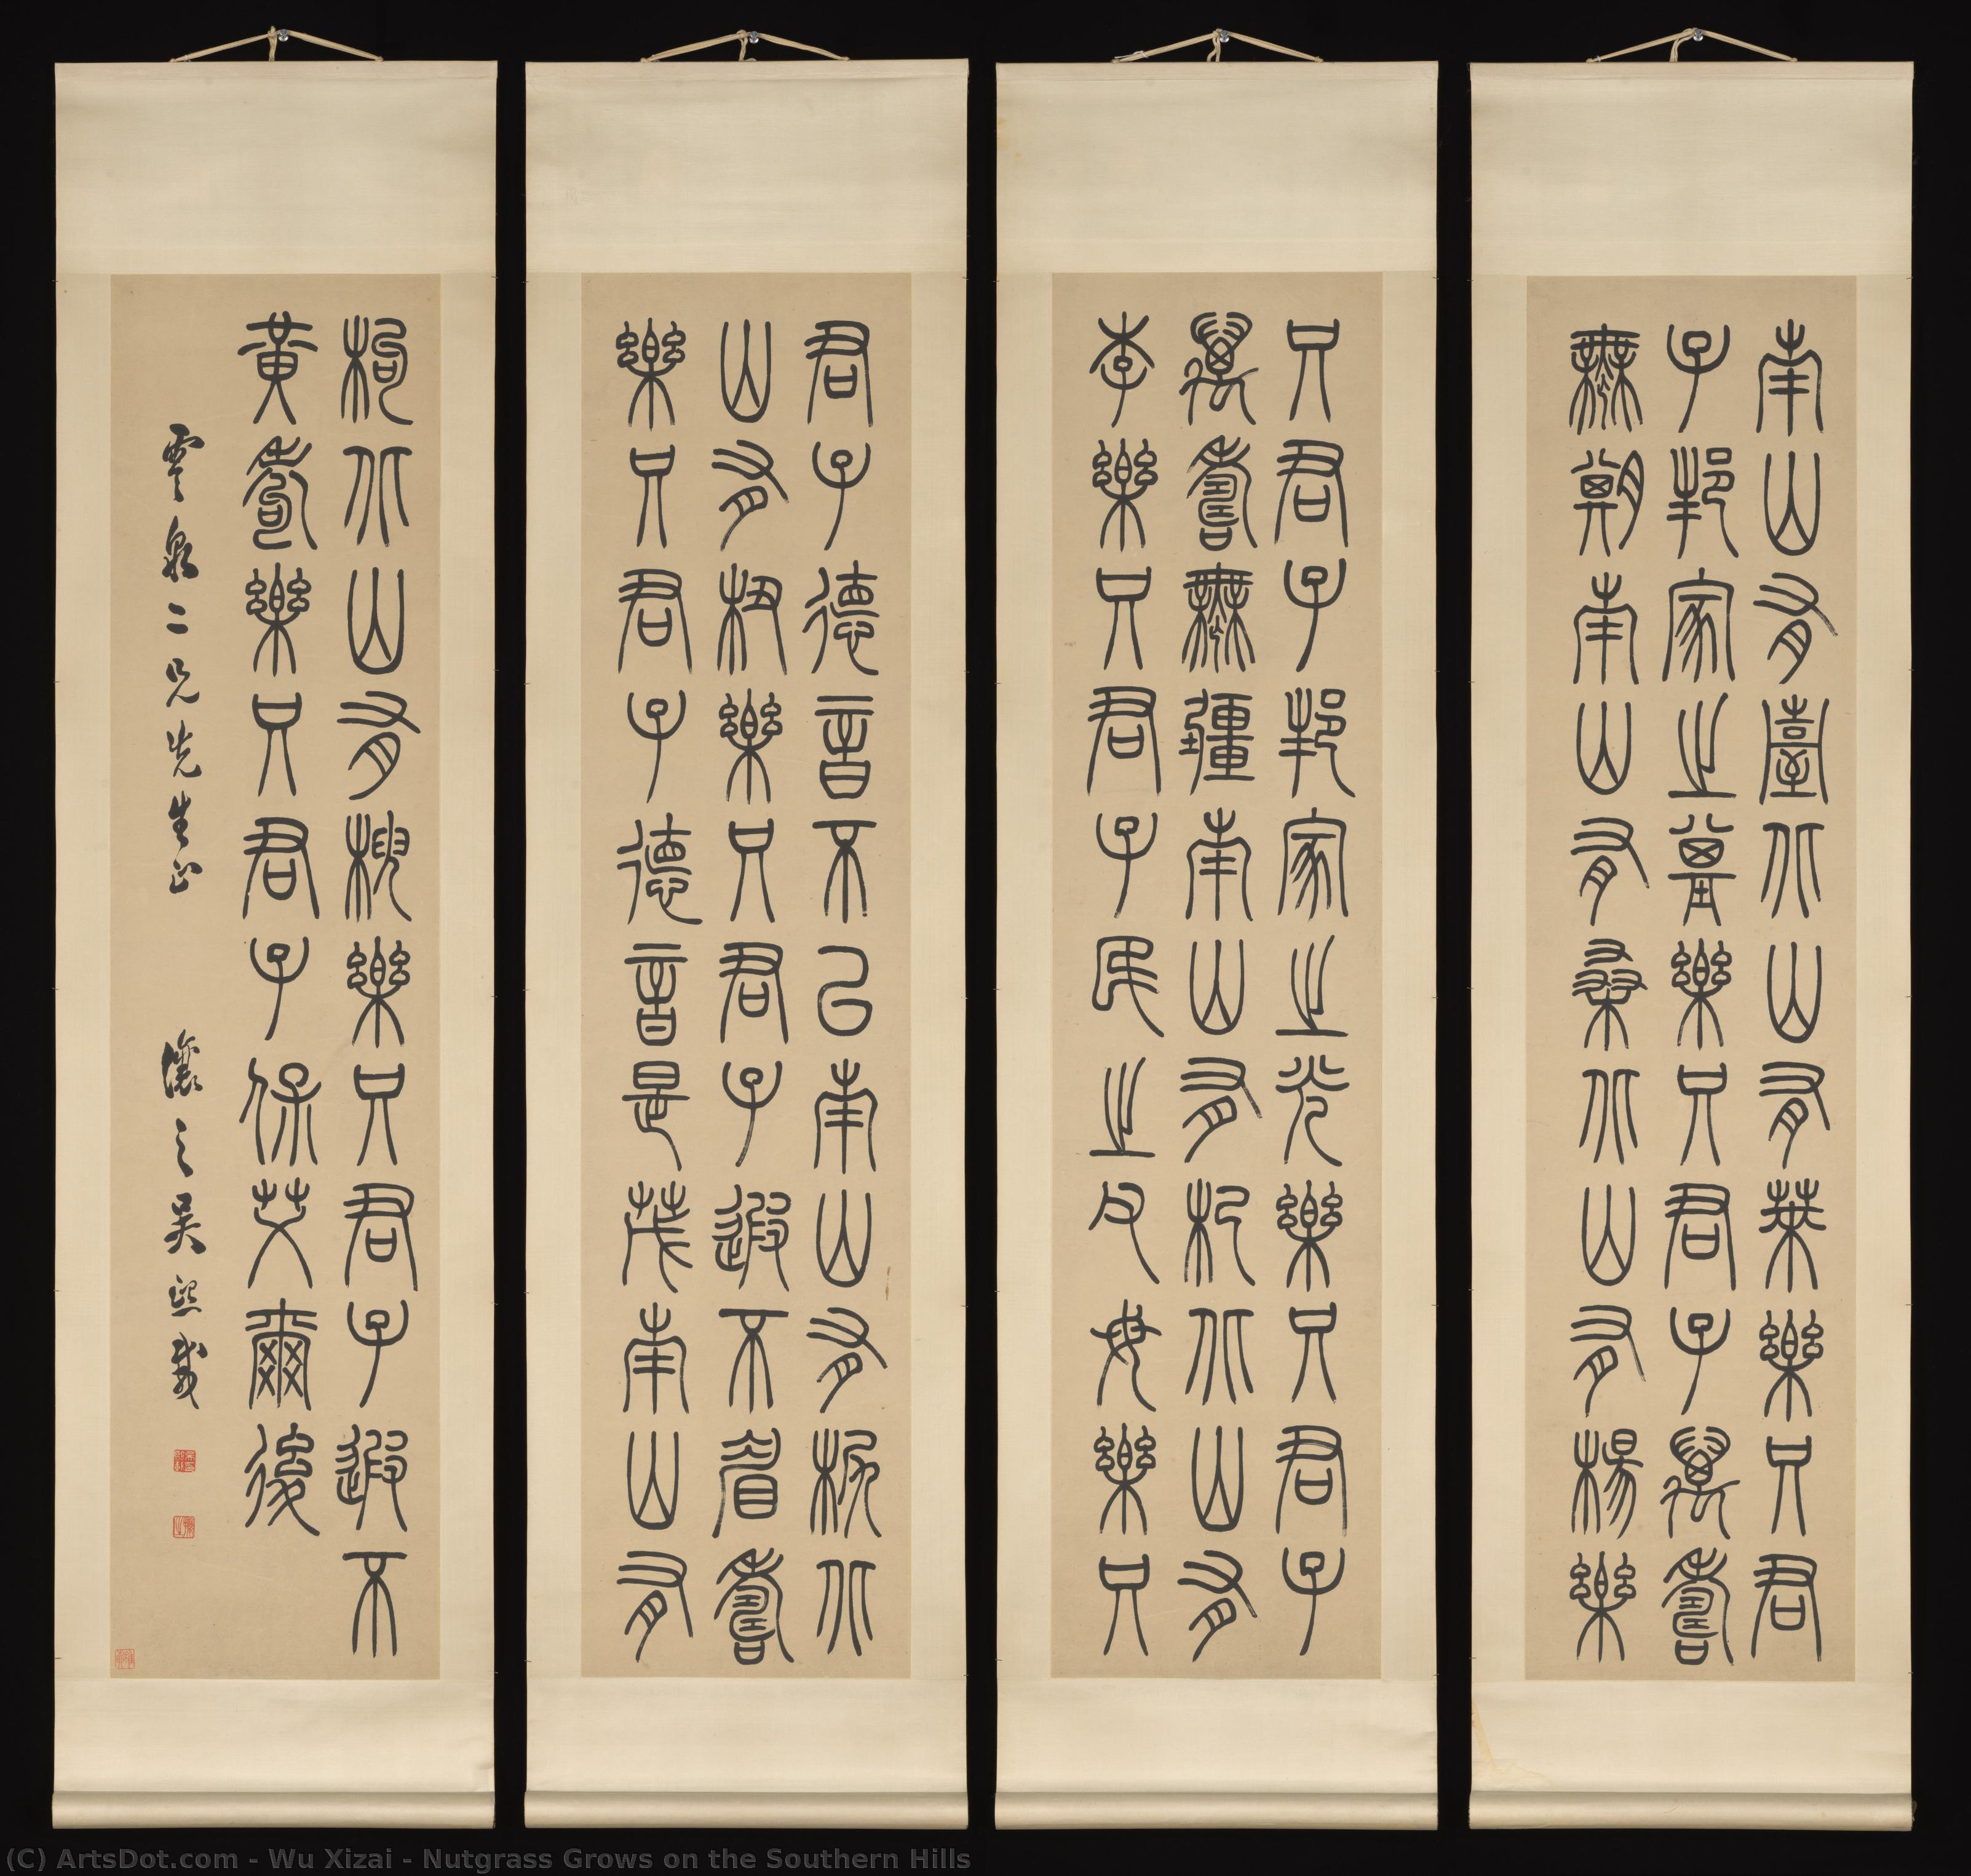 南山有臺北山有萊樂只君
子邦家之基樂只君子萬壽
無期南山有桑北山有楊樂
只君子邦家之光樂只君子
萬壽無疆南山有杞北山有
李樂只君子民之父母樂只
君子德音不已南山有栲北
山有杻樂只君子遐不眉壽
樂只君子德音是茂南山有
枸北山有楰樂只君子遐不
黃耇樂只君子保艾爾後
雲泉二兄先生正 讓之吳熙載
(C) ArtsDot.com - Wu Xizai - Nutgrass Grows on the Southern Hills